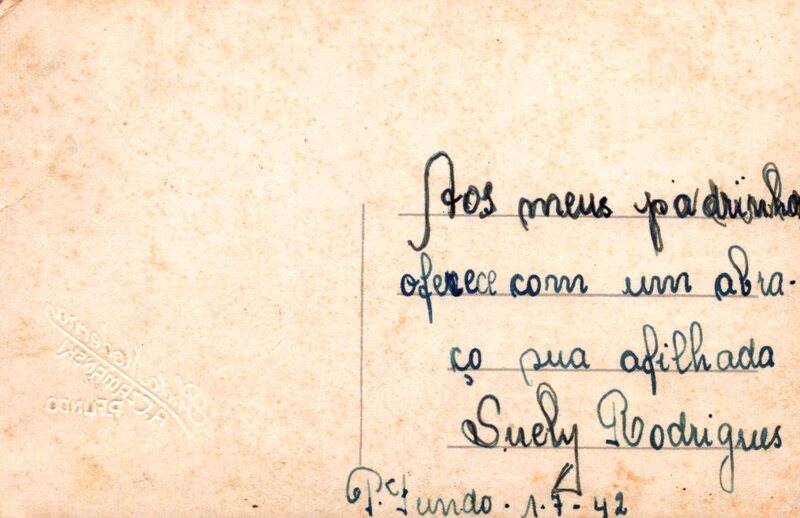 Aos meus padrinhos
oferece com um abra-
ço sua afilhada
Suely Rodrigues
P.c Fundo. 1.7-42
Photo Moderna
P.FUNDO